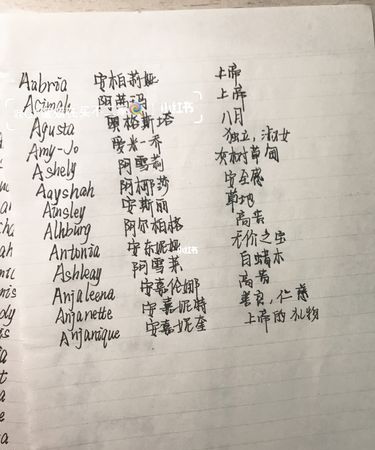 Aabria 安柏莉娅 上帝
Acimah 阿茜玛 上帝
小红书
Agusta 奥格斯塔 八月
Amy-Jo 爱米-乔 独立，淑女
Ashely 阿雪莉 灰树草甸
Aayshah 阿椰莎 安全感
Ainsley 安斯丽 草地
Alhburg 阿尔柏格 高贵
Antonia 安东妮娅 无价之宝
小红书
Ashleay 阿雪莱 白蜡木
Anjaleena 安嘉伦娜 高贵
Anjanette 安嘉妮特 善良，仁慈
Anjanique 安嘉妮奎 上帝的礼物